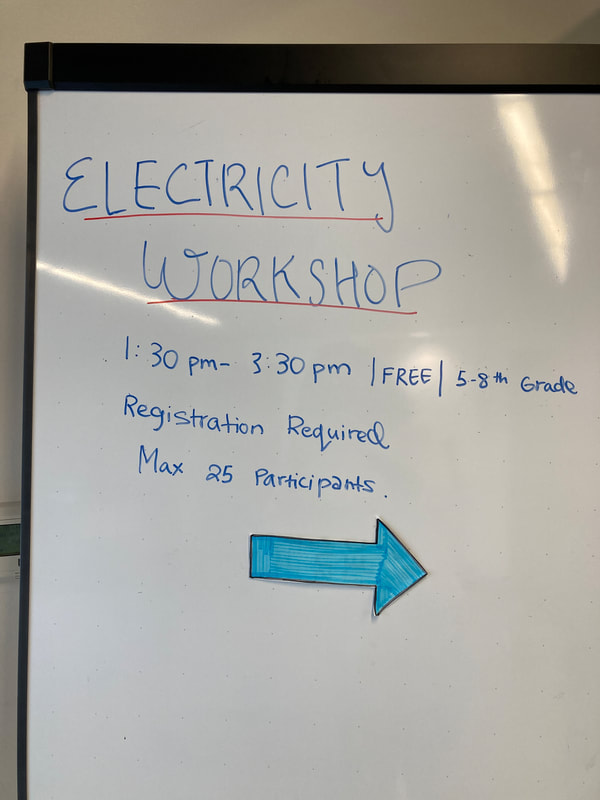 ELECTRICITY
WORKSHOP
1:30 pm- 3:30 pm |FREE| 5-8th Grade
Registration Required
Max 25 Participants.